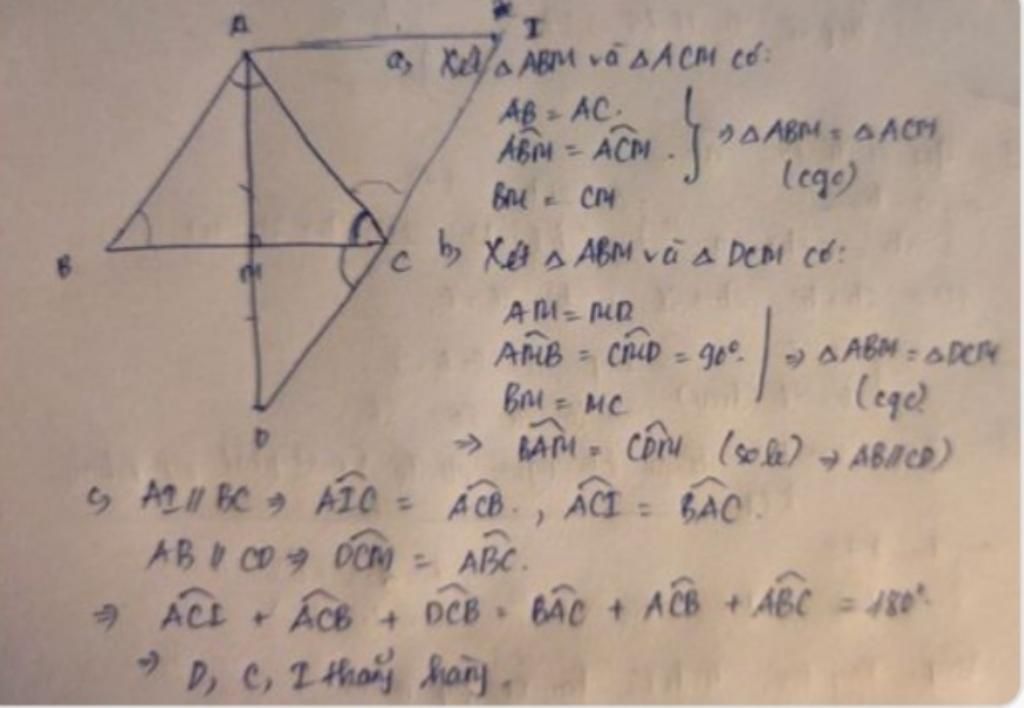 A
I
a, Xét △ABM và △ACM có:
AB = AC.
ABM̂ = ACM̂. } ⇒ △ABM = △ACM
BM = CM (cgc)
B
M
C
b, Xét △ABM và △DCM có:
AM = MD
AMB̂ = CMD̂ = 90°. | ⇒ △ABM = △DCM
BM = MC (cgc)
D
⇒ BAM̂ = CDM̂ (so le) ⇒ AB//CD)
c, AI // BC ⇒ AIĈ = ACB̂., ACÎ = BAĈ.
AB // CD ⇒ DCM̂ = ABĈ.
⇒ ACÎ + ACB̂ + DCB̂ = BAĈ + ACB̂ + ABĈ = 180°.
⇒ D, C, I thẳng hàng.